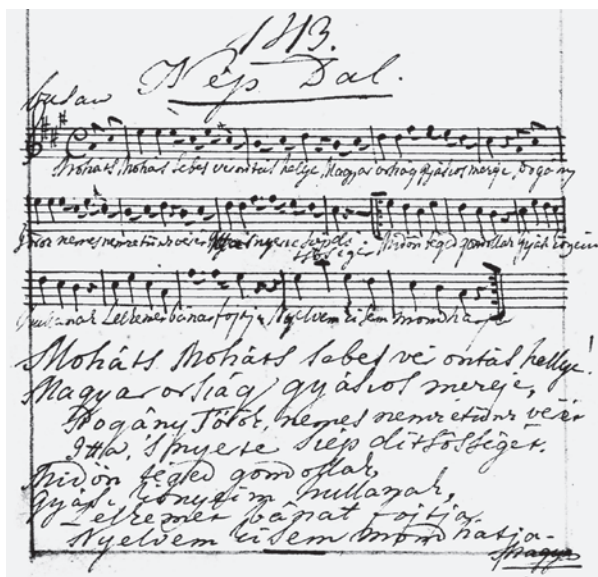 1813.
Nép Dal.
busan
Moháts Mohás sebes vérontás hellye, Magyar ország gyászos mereje, Pogány
Török nemes nemzetünk vérét nyerte szép di
tsősségét Midőn téged gondollak Gyász könyeim
hullanak Lelkemet bánat fojtja Nyelvem ki sem mondhatja
Moháts Moháts sebes vér ontás hellye!
Magyar ország gyászos mereje,
Pogány Török, nemes nemzetünk vérét
Itta, 's nyerte szép ditsősségét.
Midön téged gondollak
Gyász könyeim hullanak,
Lelkemet bánat fojtja
Nyelvem ki sem mondhatja-